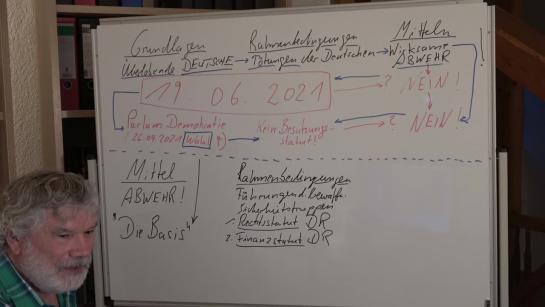 Grundlagen Rahmenbedingungen Mitteln
DEUTSCHE → Tötungen der Deutschen → Wirksame ABWEHR !
19. 06. 2021 ? NEIN!
Parlam. Demokratie
(26.09.2021 Wahl) Kein Besatzungs-
statut! ? NEIN!
Mittel
ABWEHR!
"Die Basis"
Rahmenbedingungen
Führung d. bewaffn.
Sicherheitstruppen
1. Rechtsstatut DR
2. Finanzstatut DR